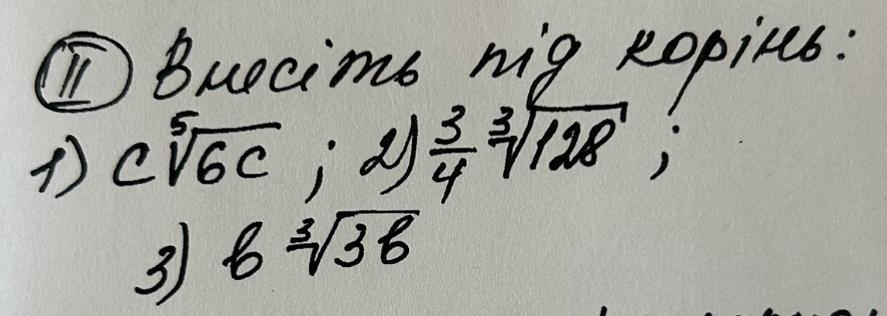 II Внесіть під корінь:
1) c⁵√6c ; 2) 3/4 ³√128 ;
3) b ³√3b